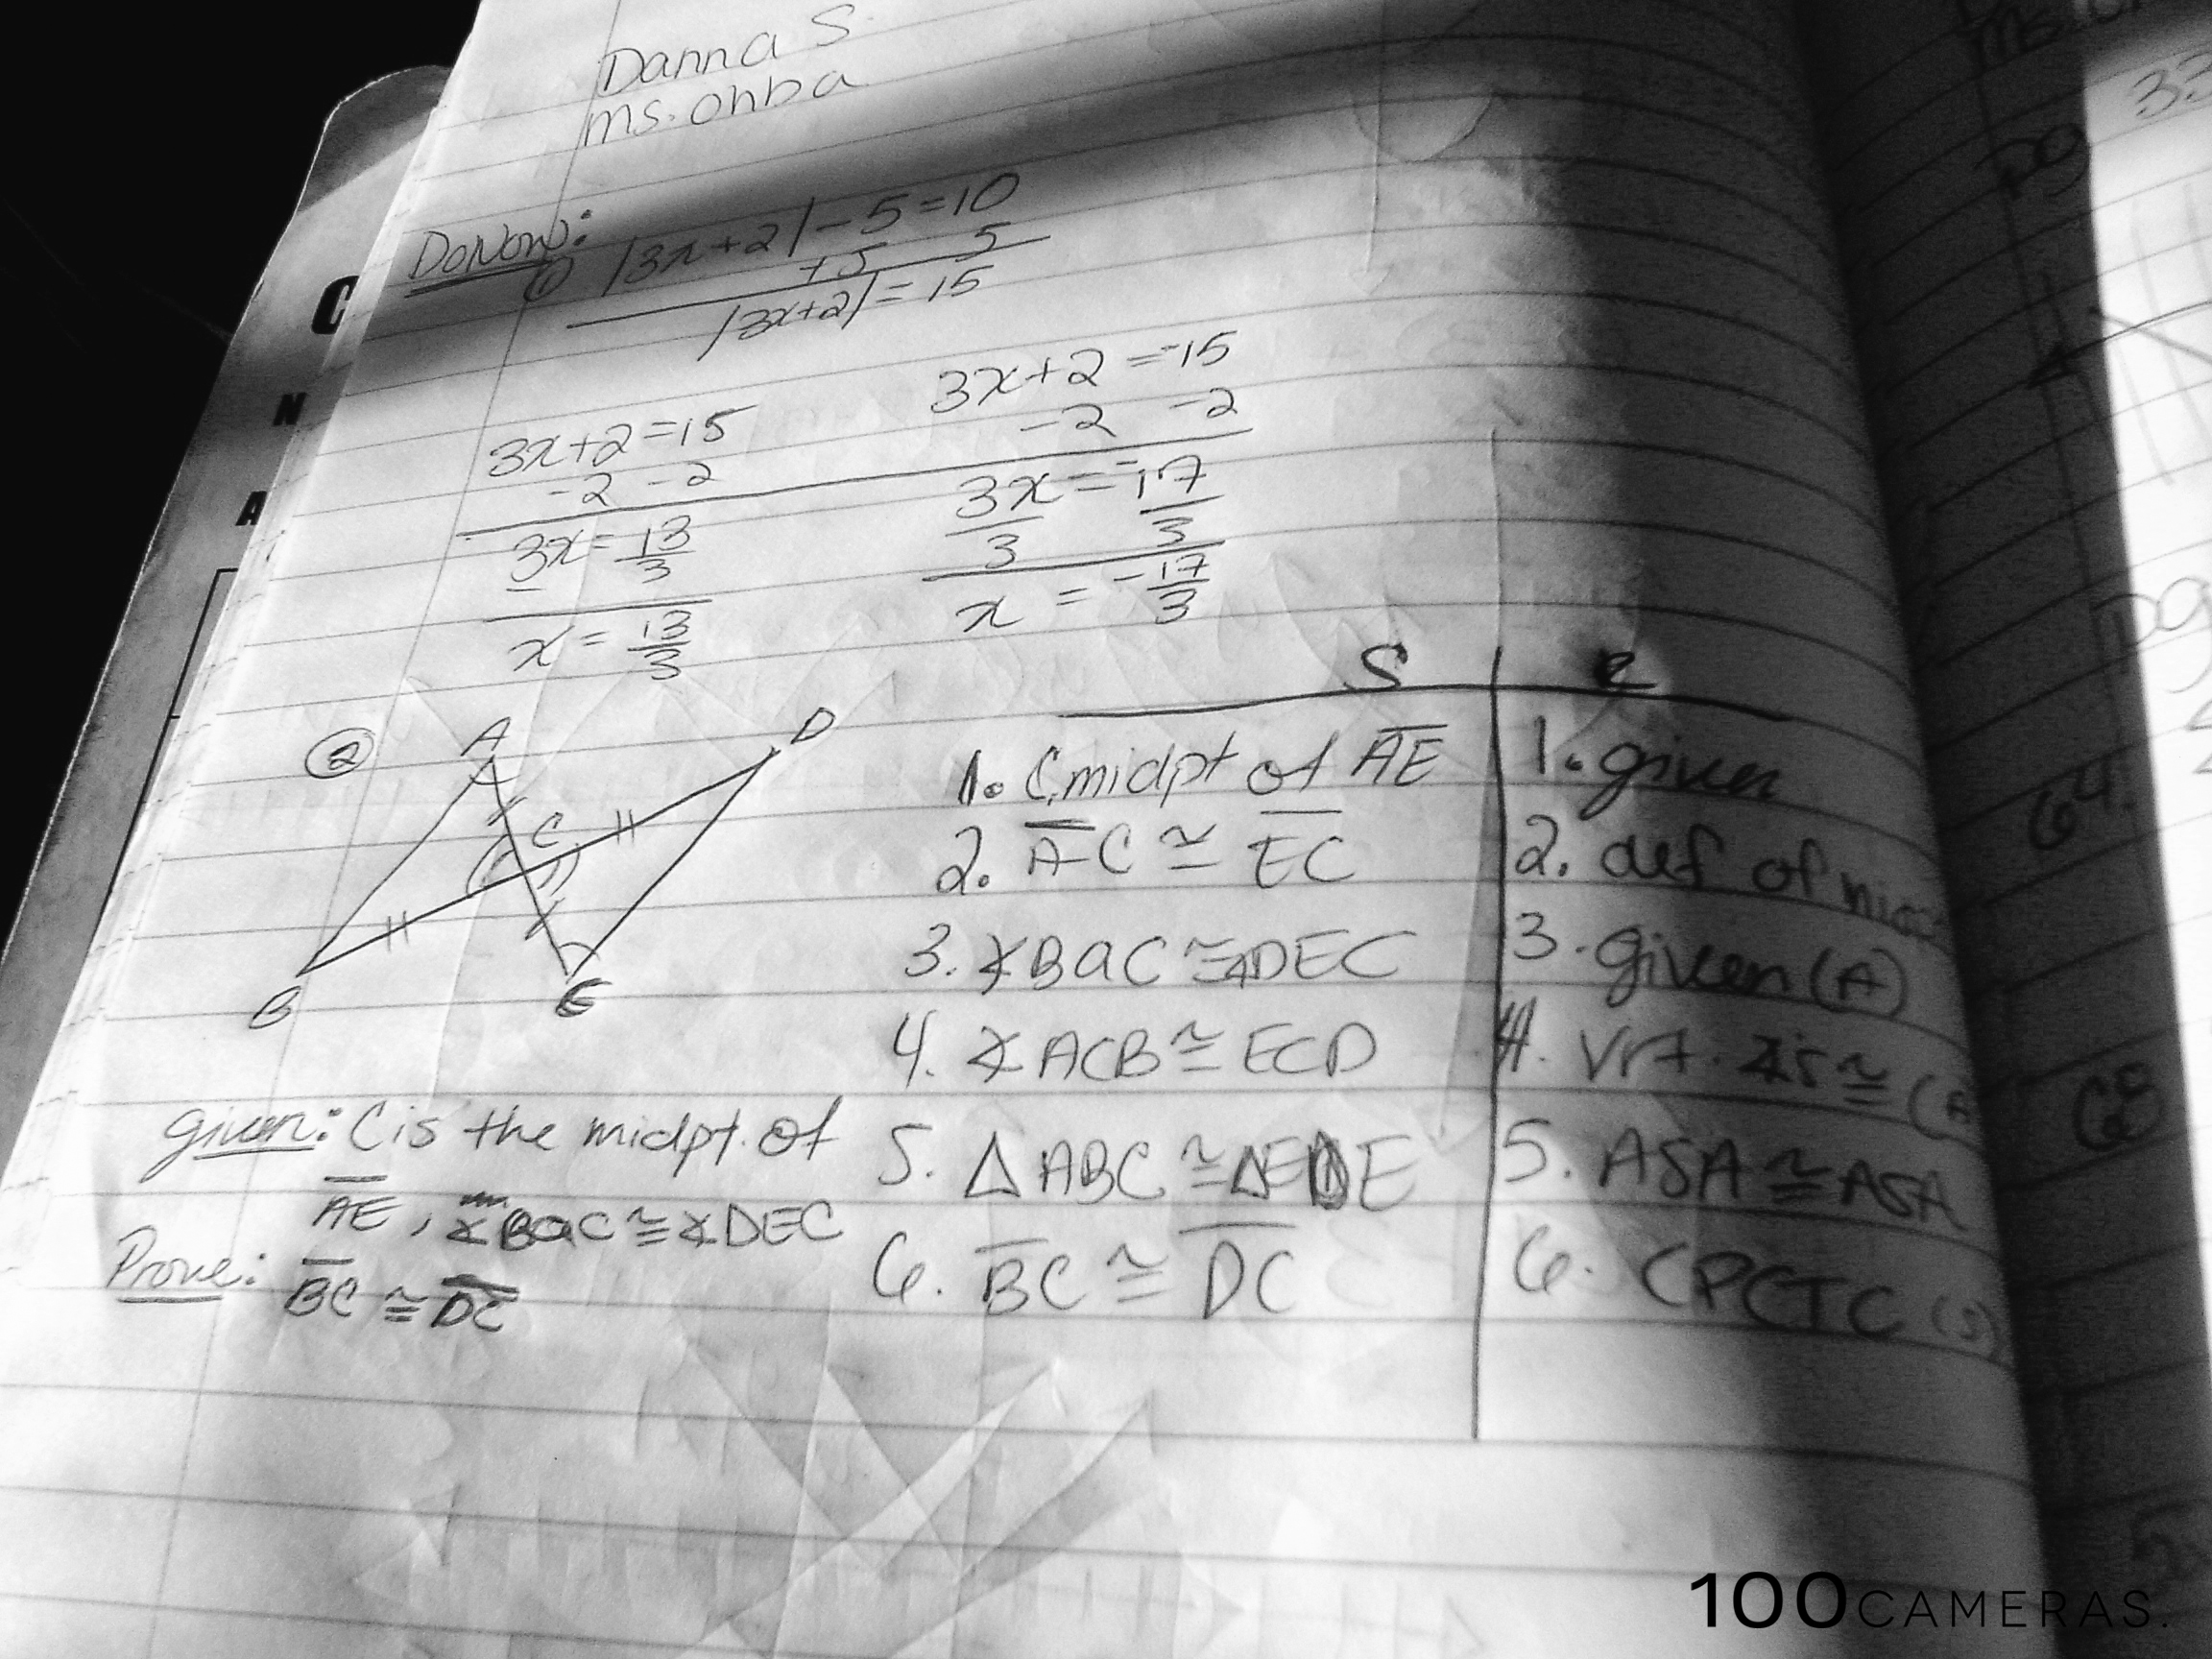 Danna S
ms. Ohba
DoNow:
① |3x+2|-5=10
+5 5
|3x+2|=15
3x+2=15
-2 -2
3x=13
3
x=13
3
3x+2=-15
-2 -2
3x=-17
3 3
x=-17
3
②
A
D
C
B
E
given: C is the midpt. of
AE, ∡BaC≅∡DEC
Prove: BC≅DC
S
1. C midpt of AE 1. given
2. AC≅EC 2. def of
3. ∡BaC≅∡DEC 3. given (A)
4. ∡ACB≅ECD 4. Vrt. ∡'s≅
5. △ABC≅ 5. ASA≅ASA
6. BC≅DC 6. CPCTC (S)
33
pg
64.
68
C
N
A
100CAMERAS.